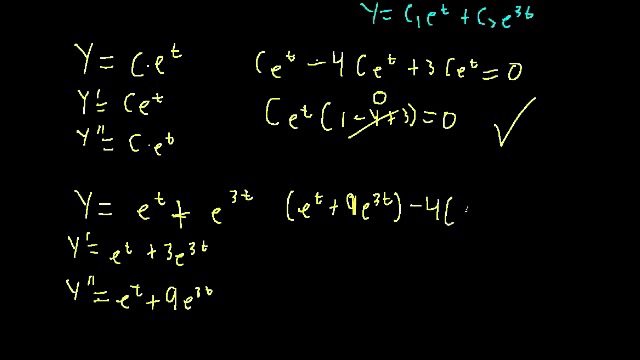 Y = C₁e^t + C₂e^3t
Y = C·e^t
Y' = Ce^t
Y'' = C·e^t
Ce^t - 4Ce^t + 3Ce^t = 0
0
Ce^t (1 - 4 + 3) = 0 ✓
Y = e^t + e^3t
Y' = e^t + 3e^3t
Y'' = e^t + 9e^3t
(e^t + 9e^3t) - 4(